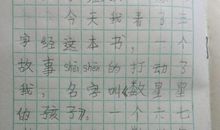 今天我看了三
字经这本书，一个
故事shēn shēn的打动了
我，名字叫《数星星
的孩子》。一个六七